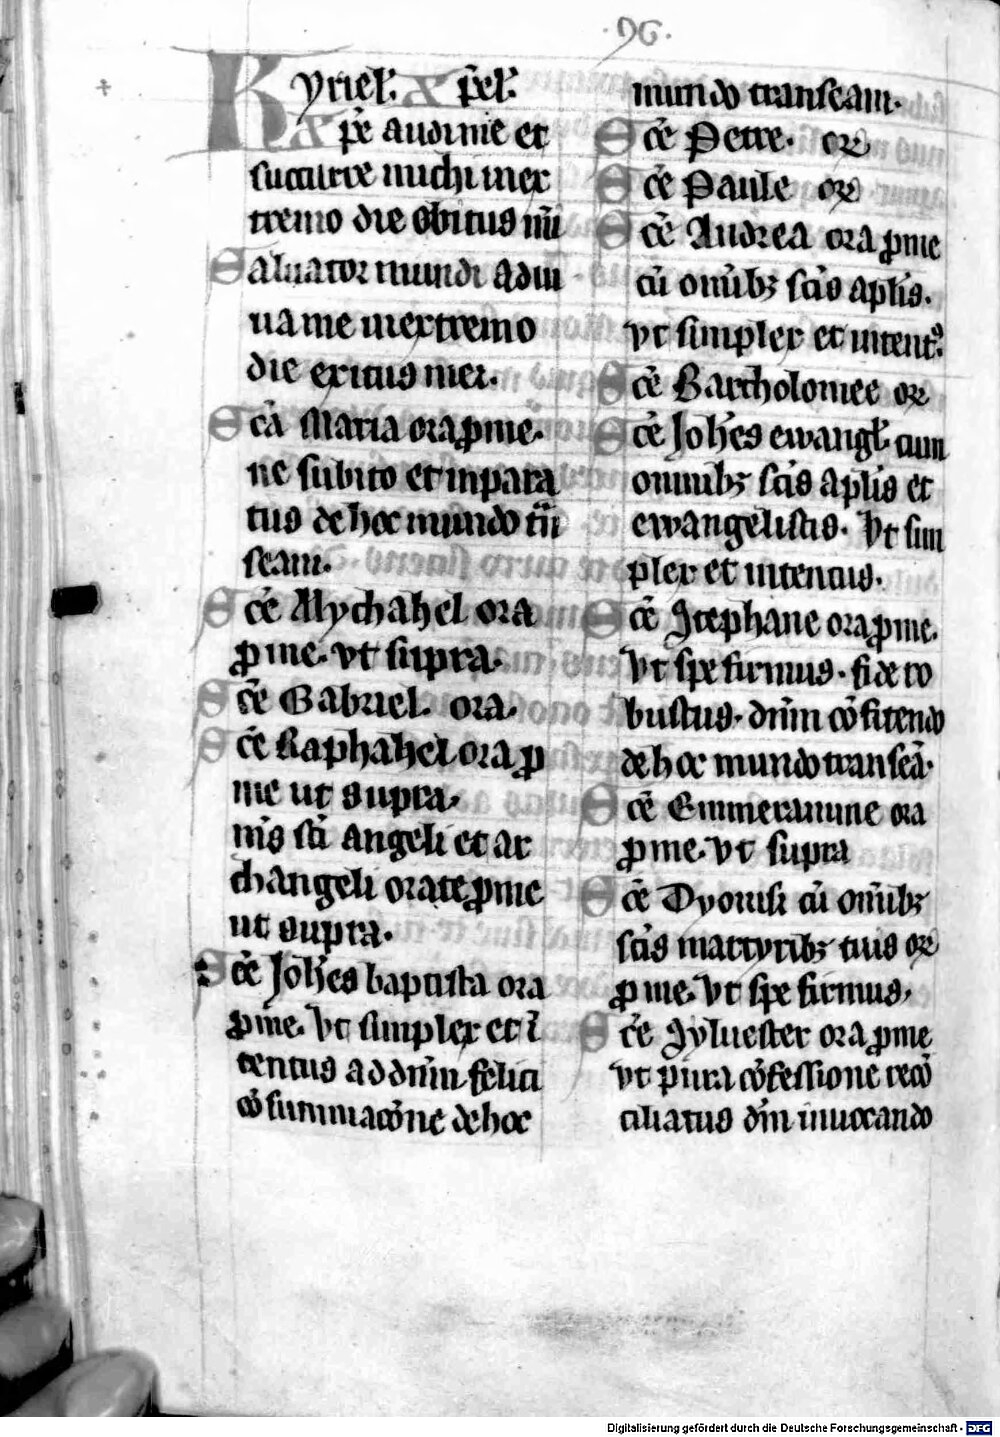 ·96·
Kyriel̅. xp̅el̅.
Xp̅e audi me et
succurre michi in ex
tremo die obitus mi̅
Saluator mundi adiu
ua me in extremo
die exitus mei.
Sc̅a Maria ora p̱ me.
ne subito et inpara
tus de hoc mundo tn̅
seam.
Sc̅e Mychahel ora
p̱ me. vt supra.
Sc̅e Gabriel. ora.
Sc̅e Raphahel ora p̱
me ut supra.
m̅s sc̅i Angeli et ar
changeli orate p̱ me
ut supra.
Sc̅e Joh̅es baptista ora
p̱ me. Vt simplex et i̅
tentus ad dn̅m felici
co̅summaco̅ne de hoc
mundo transeam.
Sc̅e Petre. or̅
Sc̅e Paule or̅
Sc̅e Andrea ora p̱ me
cu̅ om̅ib; sc̅is ap̅lis.
vt simplex et intent9.
Sc̅e Bartholomee or̅
Sc̅e Joh̅es ewangl̅. cum
omnib; sc̅is ap̅lis et
ewangelistis. Vt sim
plex et intentus.
Sc̅e Stephane ora p̱ me.
Vt spe firmus. fide ro
bustus. dn̅m co̅fitendo
de hoc mundo transea̅.
Sc̅e Emmeramme ora
p̱ me. vt supra
Sc̅e Dyonisi cu̅ om̅ib;
sc̅is martyrib; tuis or̅
p̱ me. Vt spe firmus.
Sc̅e Syluester ora p̱ me
vt pura co̅fessione reco̅
ciliatus dn̅m inuocando
Digitalisierung gefördert durch die Deutsche Forschungsgemeinschaft - DFG